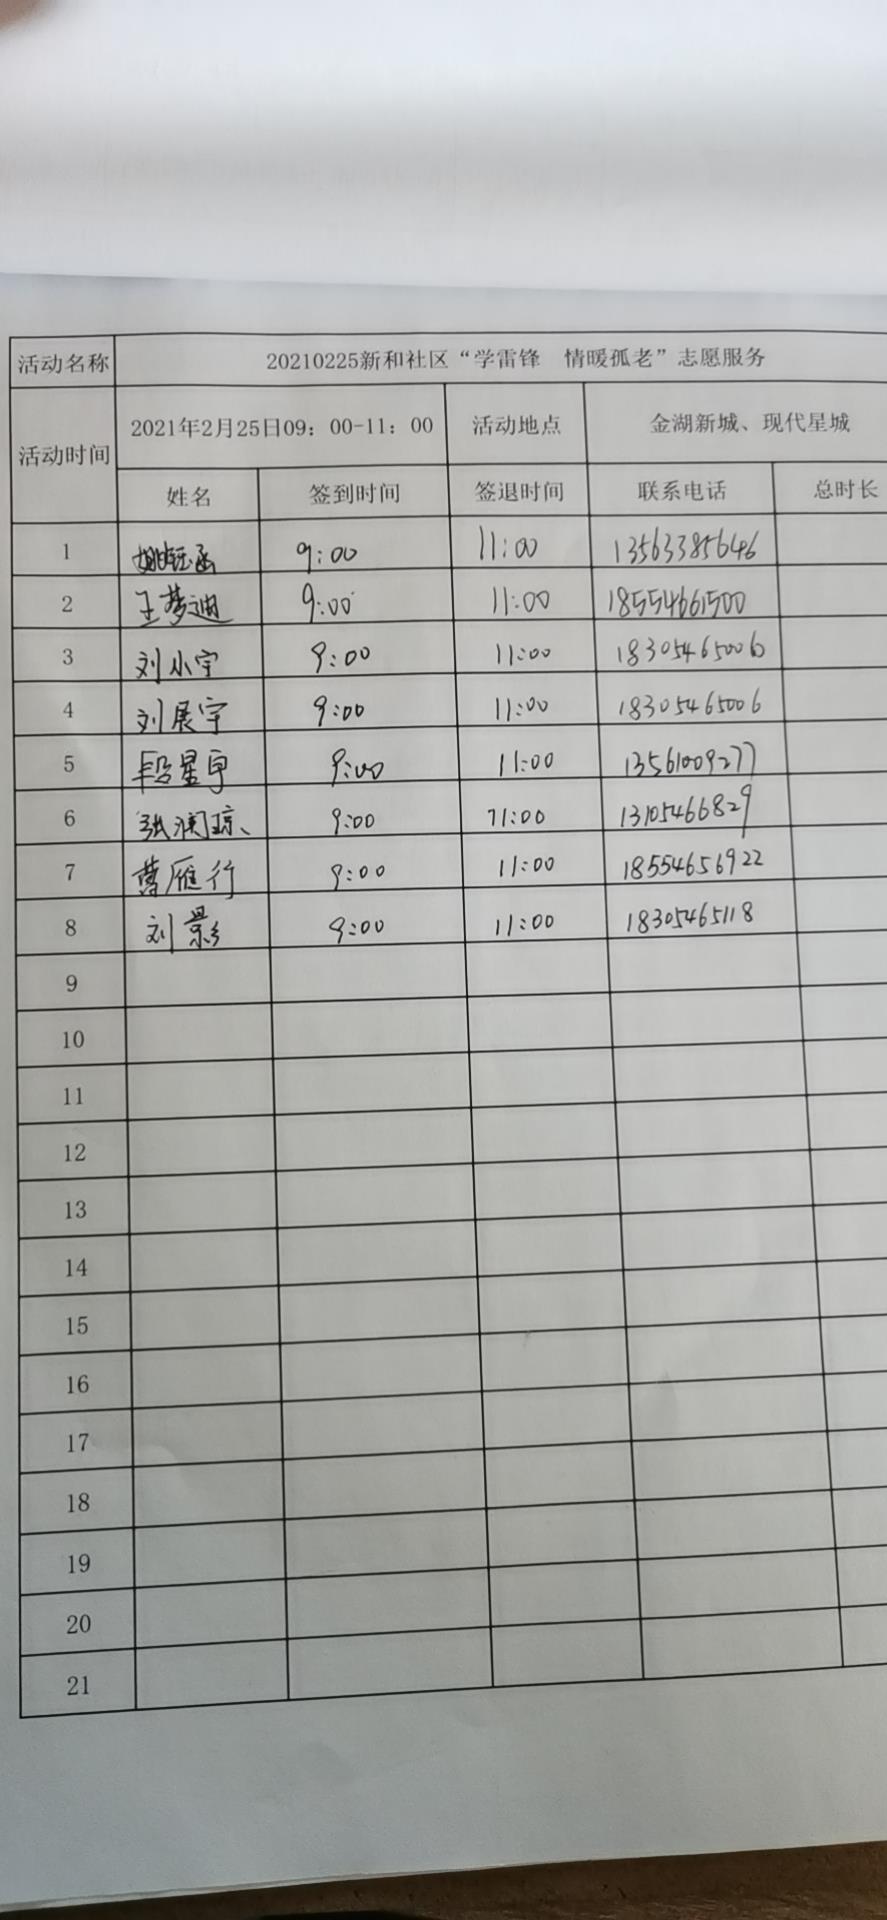 活动名称 20210225新和社区“学雷锋 情暖孤老”志愿服务
活动时间 2021年2月25日09：00-11：00 活动地点 金湖新城、现代星城
姓名 签到时间 签退时间 联系电话 总时长
1 姚钰函 9:00 11:00 13563385646
2 王梦迪 9:00 11:00 18554661500
3 刘小宇 9:00 11:00 18305465006
4 刘展宇 9:00 11:00 18305465006
5 段星宇 9:00 11:00 13561009277
6 张润琼 9:00 11:00 13105466829
7 雁行 9:00 11:00 18554656922
8 刘影 9:00 11:00 18305465118
9
10
11
12
13
14
15
16
17
18
19
20
21